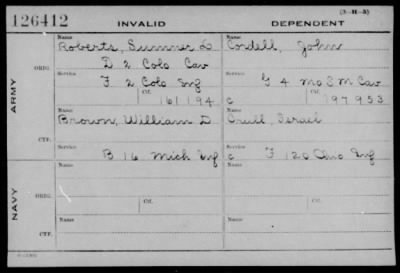 126412 INVALID DEPENDENT (3-M-3)
Name Name
Roberts, Sumner D Cordell, John
ORIG. D 2 Colo Cav
Service Service
F 2 Colo Inf G 4 Mo S M Cav
Ctf. Ctf.
161194 c 197953
ARMY
Name Name
Brown, William D Crull, Israel
CTF.
Service Service
B 16 Mich Inf c F 120 Ohio Inf
NAVY
Name Name
ORIG. Ctf. Ctf.
Service Service
Name Name
CTF.